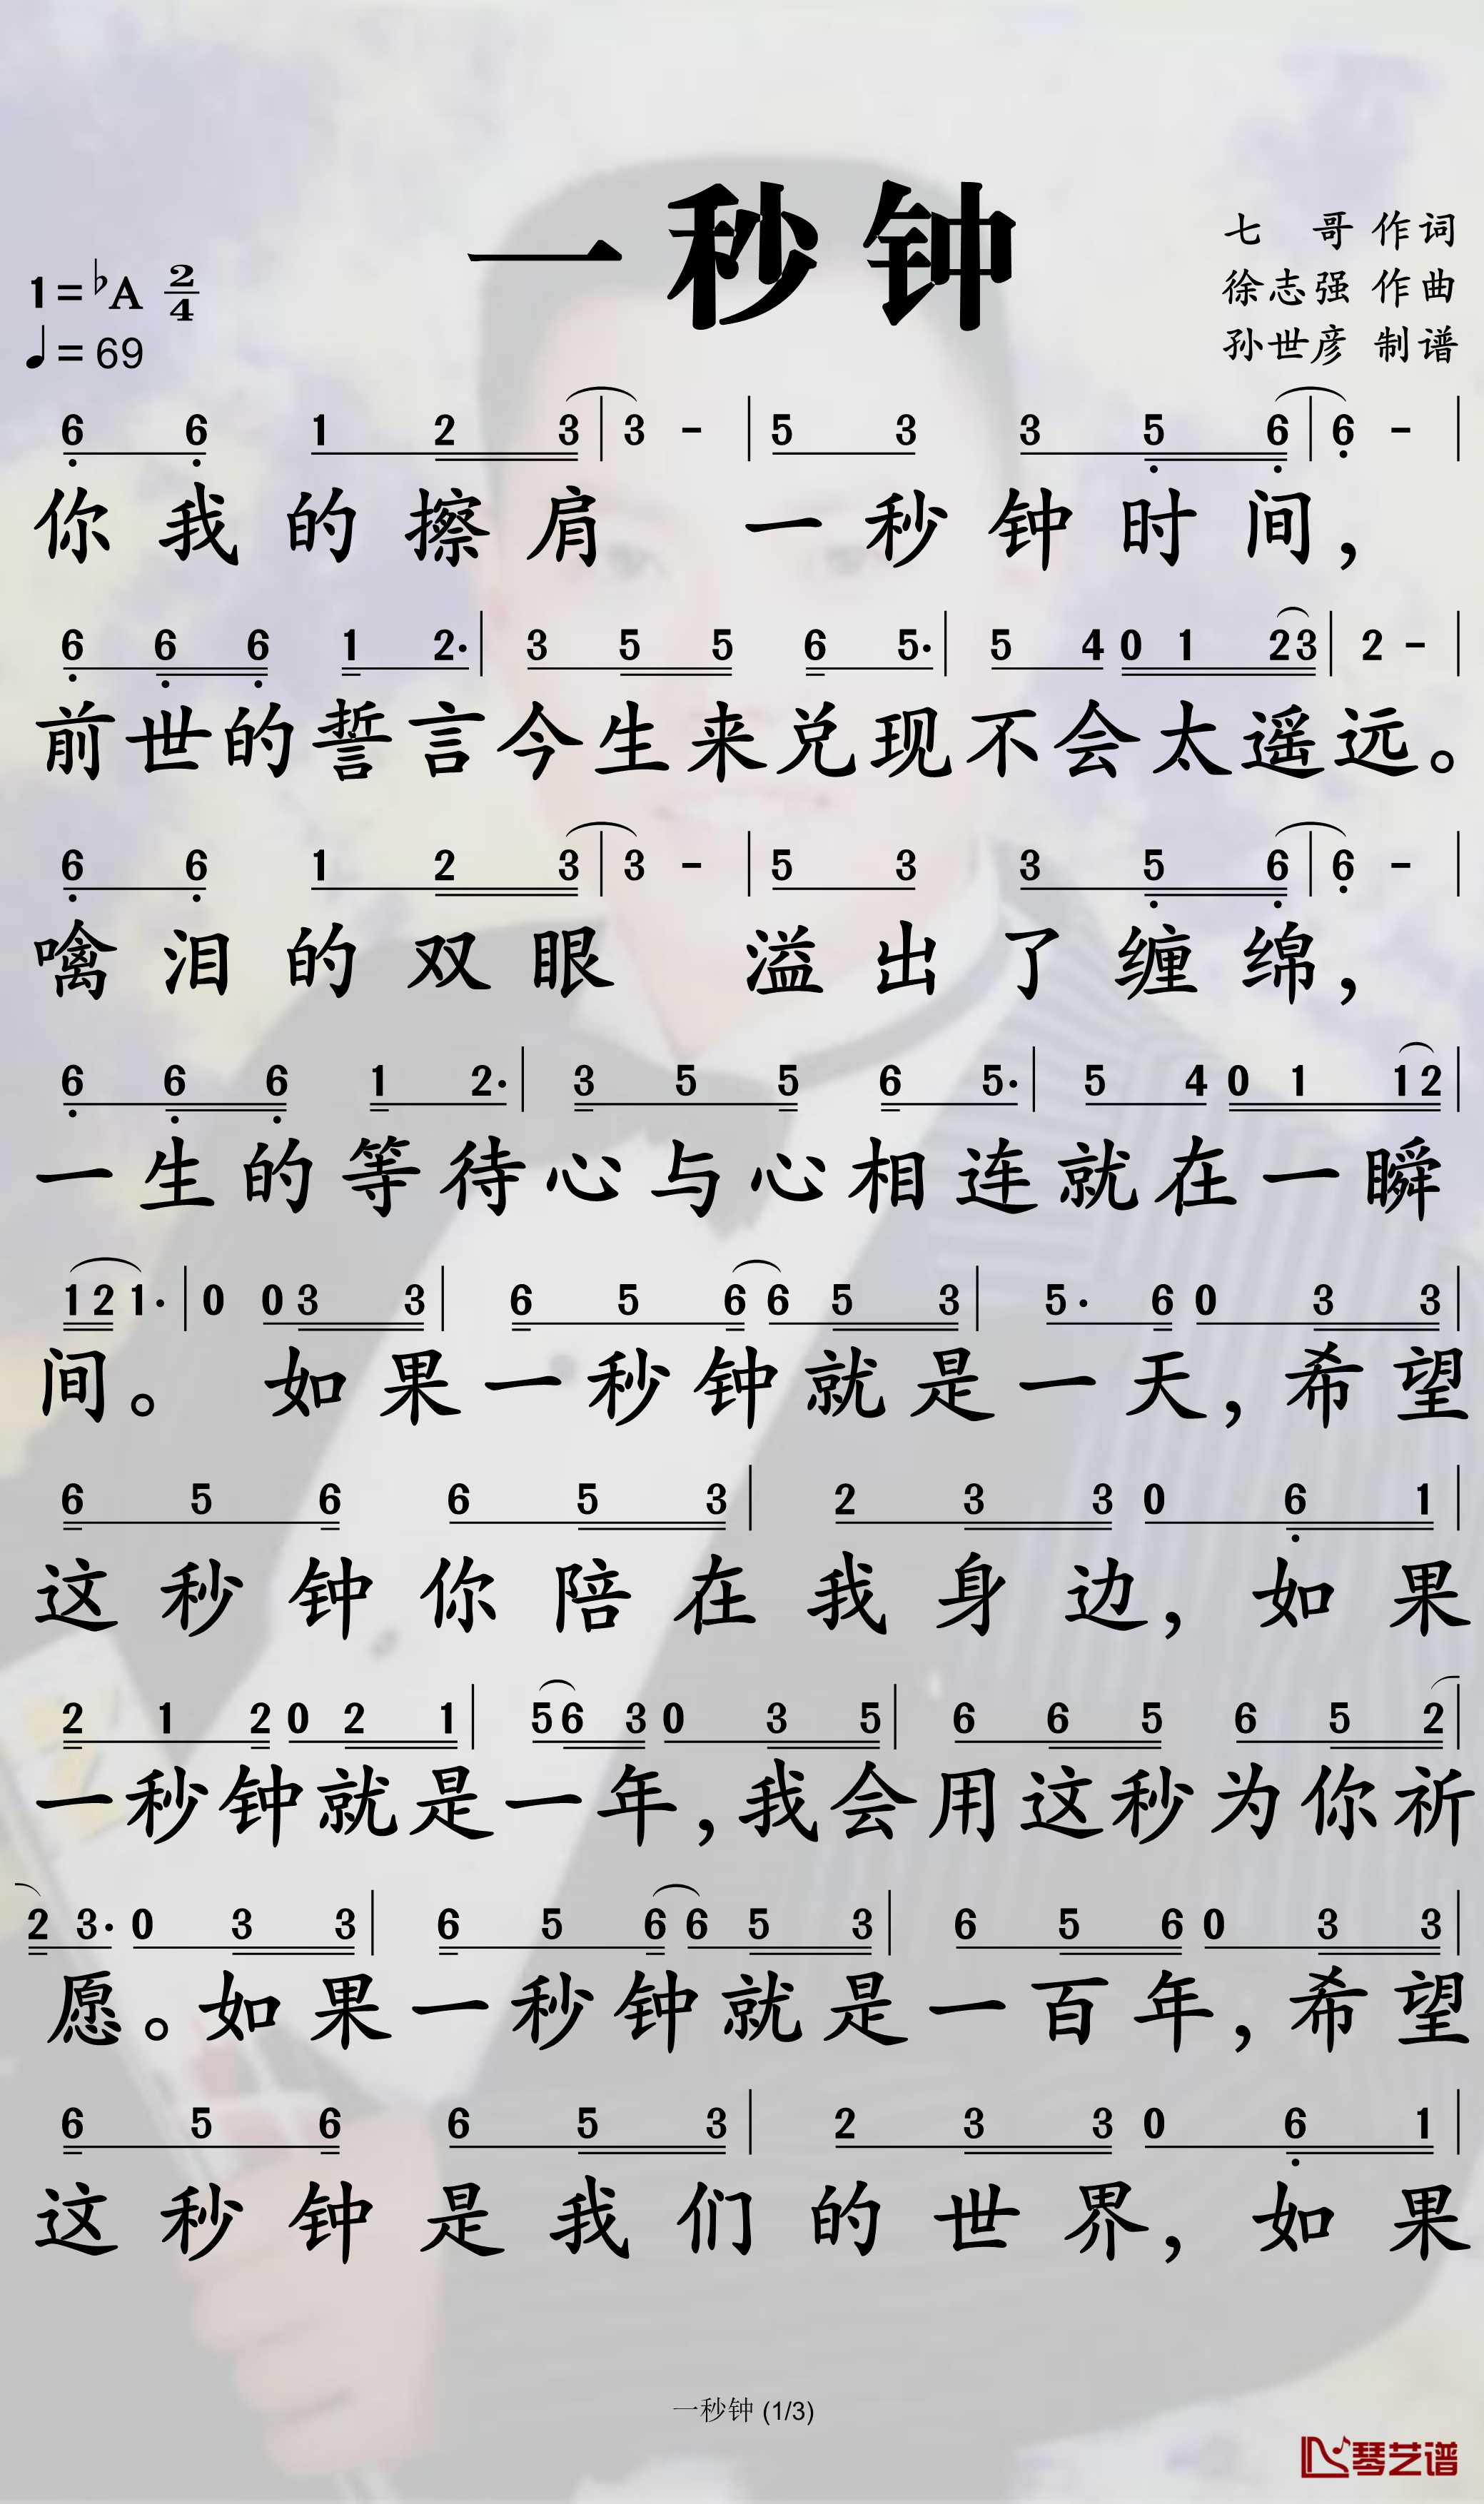 一秒钟
七 哥 作词
徐志强 作曲
孙世彦 制谱
1=♭A 2/4
♩=69
6 6 1 2 3 | 3 - | 5 3 3 5 6 | 6 - |
你我的擦肩 一秒钟时间，
6 6 6 1 2· | 3 5 5 6 5· | 5 4 0 1 2 3 | 2 - |
前世的誓言今生来兑现不会太遥远。
6 6 1 2 3 | 3 - | 5 3 3 5 6 | 6 - |
噙泪的双眼 溢出了缠绵，
6 6 6 1 2· | 3 5 5 6 5· | 5 4 0 1 1 2 |
一生的等待心与心相连就在一瞬
1 2 1· | 0 0 3 3 | 6 5 6 6 5 3 | 5· 6 0 3 3 |
间。 如果一秒钟就是一天，希望
6 5 6 6 5 3 | 2 3 3 0 6 1 |
这秒钟你陪在我身边，如果
2 1 2 0 2 1 | 5 6 3 0 3 5 | 6 6 5 6 5 2 |
一秒钟就是一年，我会用这秒为你祈
2 3· 0 3 3 | 6 5 6 6 5 3 | 6 5 6 0 3 3 |
愿。如果一秒钟就是一百年，希望
6 5 6 6 5 3 | 2 3 3 0 6 1 |
这秒钟是我们的世界，如果
一秒钟 (1/3)
琴艺谱